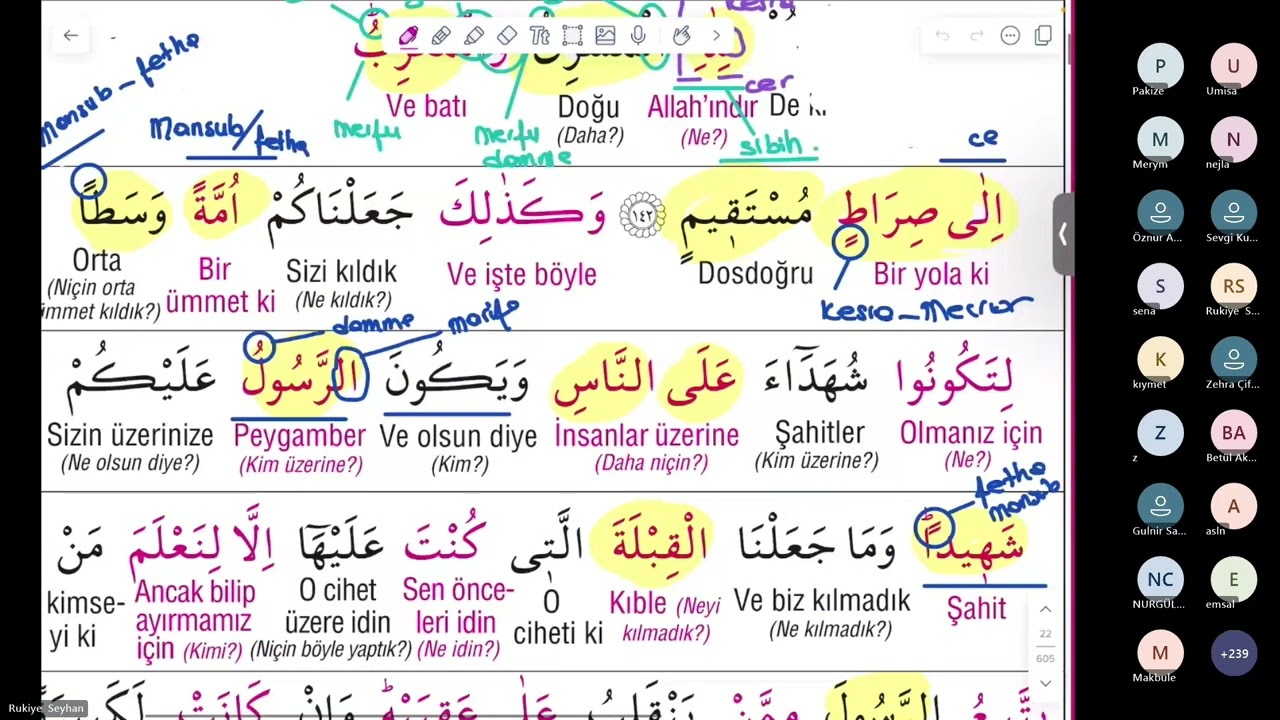 kesra
cer
Ve batı Doğu Allah'ındır De k
(Daha?) (Ne?)
merfu merfu damme sıbıh.
Mansub_fetha
Mansub/fetha
ce
اِلٰى صِرَاطٍ مُسْتَقِيمٍ ﴿١٤٢﴾ وَكَذٰلِكَ جَعَلْنَاكُمْ اُمَّةً وَسَطًا
Bir yola ki Dosdoğru Ve işte böyle Sizi kıldık (Ne kıldık?) Bir ümmet ki Orta (Niçin orta ümmet kıldık?)
kesra_Mecrur
damme marife
لِتَكُونُوا شُهَدَٓاءَ عَلَى النَّاسِ وَيَكُونَ الرَّسُولُ عَلَيْكُمْ
Olmanız için (Ne?) Şahitler (Kim üzerine?) İnsanlar üzerine (Daha niçin?) Ve olsun diye (Kim?) Peygamber (Kim üzerine?) Sizin üzerinize (Ne olsun diye?)
fetha mansub
شَهِيدًا وَمَا جَعَلْنَا الْقِبْلَةَ الَّتِى كُنْتَ عَلَيْهَٓا اِلَّا لِنَعْلَمَ مَنْ
Şahit Ve biz kılmadık (Ne kılmadık?) Kıble (Neyi kılmadık?) O ciheti ki Sen önceleri idin (Ne idin?) O cihet üzere idin (Niçin böyle yaptık?) Ancak bilip ayırmamız için (Kimi?) kimse-yi ki
يَتَّبِعُ الرَّسُولَ مِمَّنْ يَنْقَلِبُ عَلٰى عَقِبَيْهِ وَاِنْ كَانَتْ
22
605
Rukiye Seyhan
P U
Pakize Umisa
M N
Merym nejla
Öznur A... Sevgi Ku...
S RS
sena Rukiye S...
K
kıymet Zehra Çif...
Z BA
z Betül Ak...
A
Gulnir Sa... asln
NC E
NURGÜL... emsal
M +239
Makbule